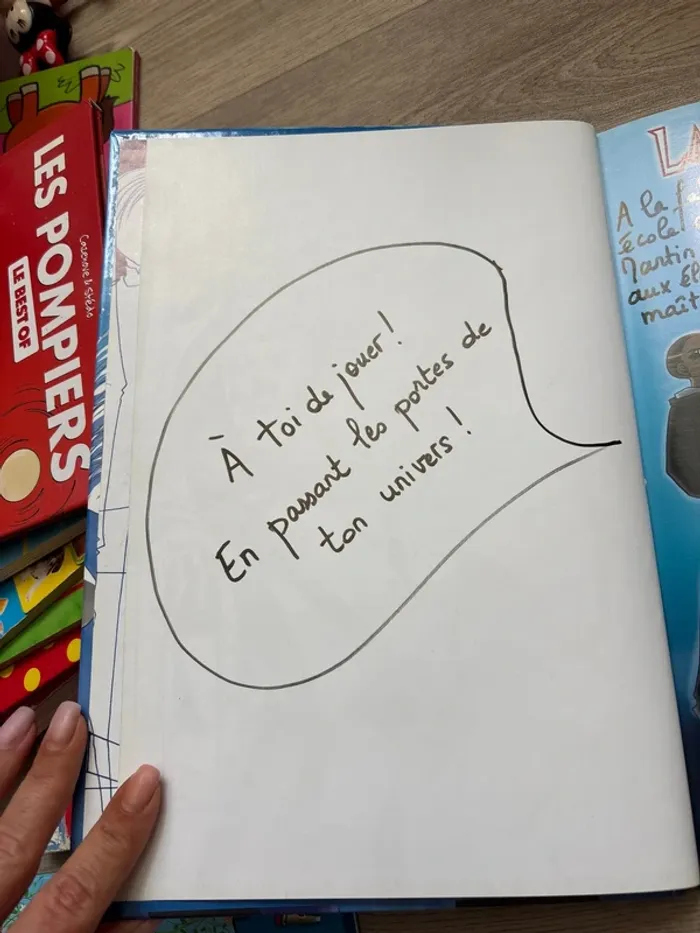 LES POMPIERS
LE BEST OF
Cazenove & Stédo
À toi de jouer !
En passant les portes de
ton univers !
A la f
école
Martin
aux él
maît